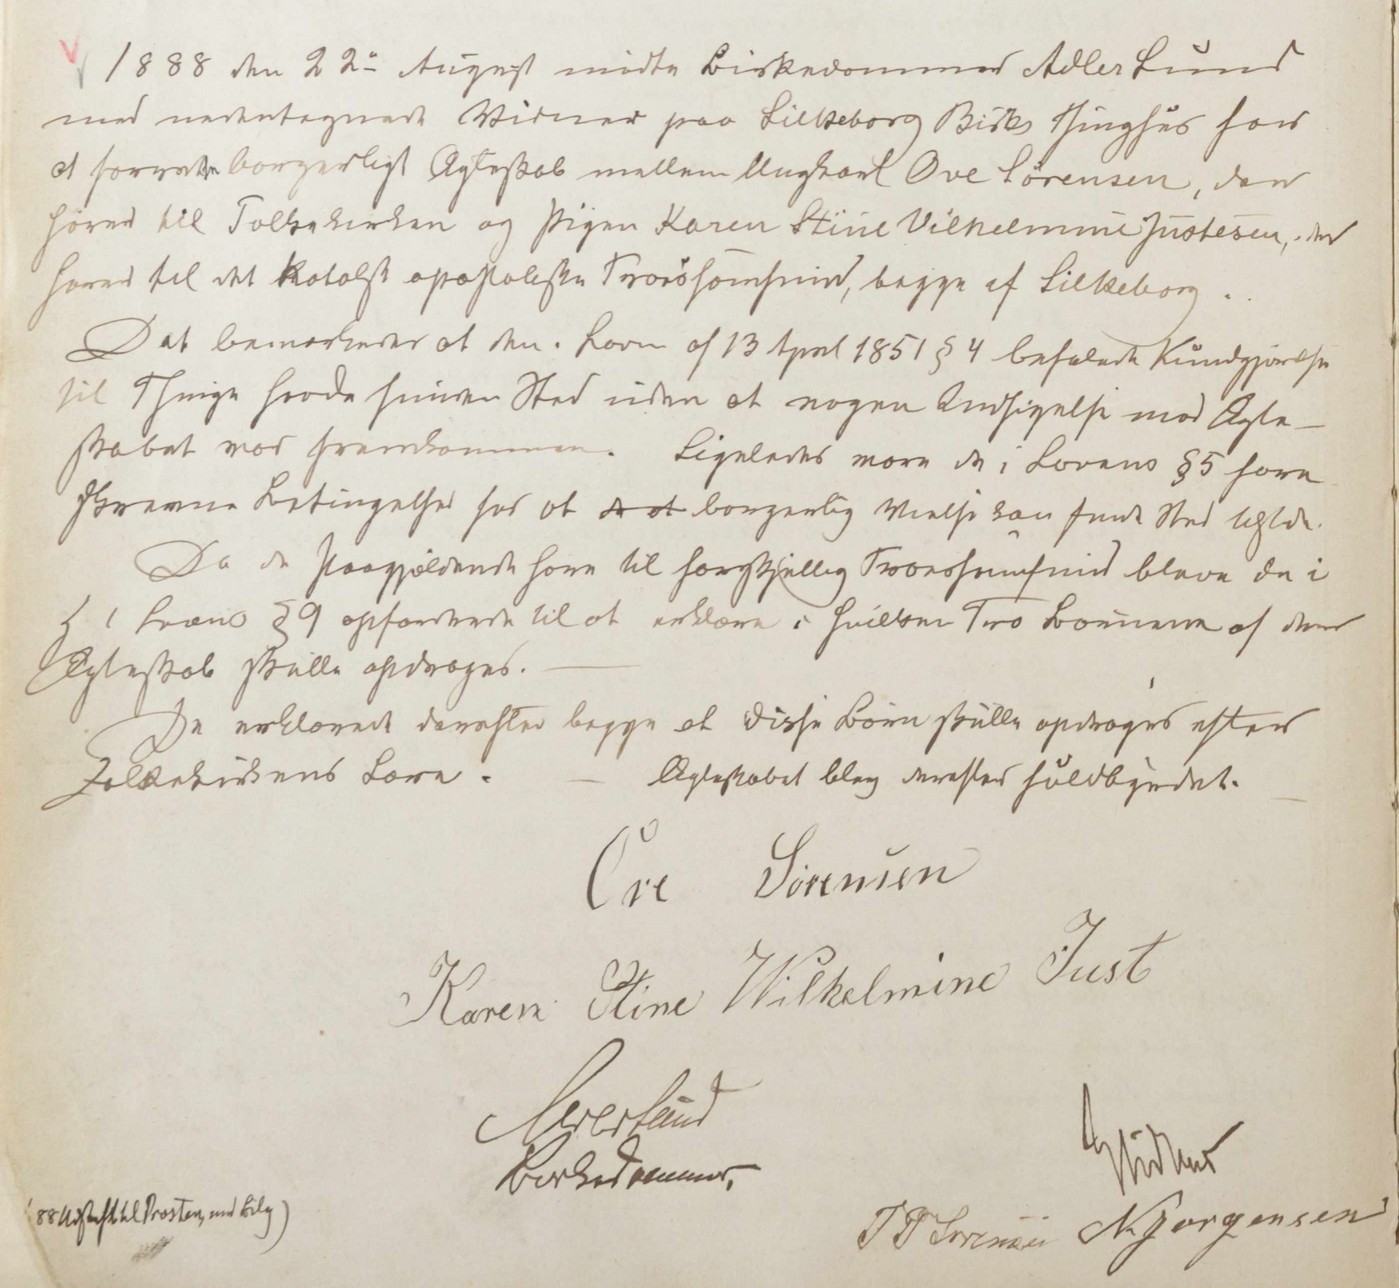 1888 den 22de August mødte Birkedommer Adler Lund
med nedentegnede Vidner paa Silkeborg Birks Thinghus for
at forrette borgerligt Ægteskab mellem Ungkarl Ove Sørensen, der
hører til Folkekirken og Pigen Karen Stine Vilhelmine Justesen, der
hører til det katolsk apostoliske Troessamfund, begge af Silkeborg.
Det bemærkedes at den i Loven af 13 April 1851 § 4 befalede Kundgjørelse
til Thinge havde funden Sted uden at nogen Indsigelse mod Ægte-
skabet var fremkommen. Ligeledes vare de i Lovens § 5 fore
skrevne Betingelser for at borgerlig Vielse kan finde Sted
Da de Paagjældende høre til forskjellig Troessamfund bleve de i
Lovens § 9 opfordrede til at erklære i hvilken Tro Børnene af deres
Ægteskab skulle opdrages.
De erklærede derefter begge at disse Børn skulle opdrages efter
Folkekirkens Lære. Ægteskabet blev derefter fuldbyrdet.
Ove Sørensen
Karen Stine Wilhelmine Just
Adler Lund
Birkedommer.
T P Sørensen N Jørgensen